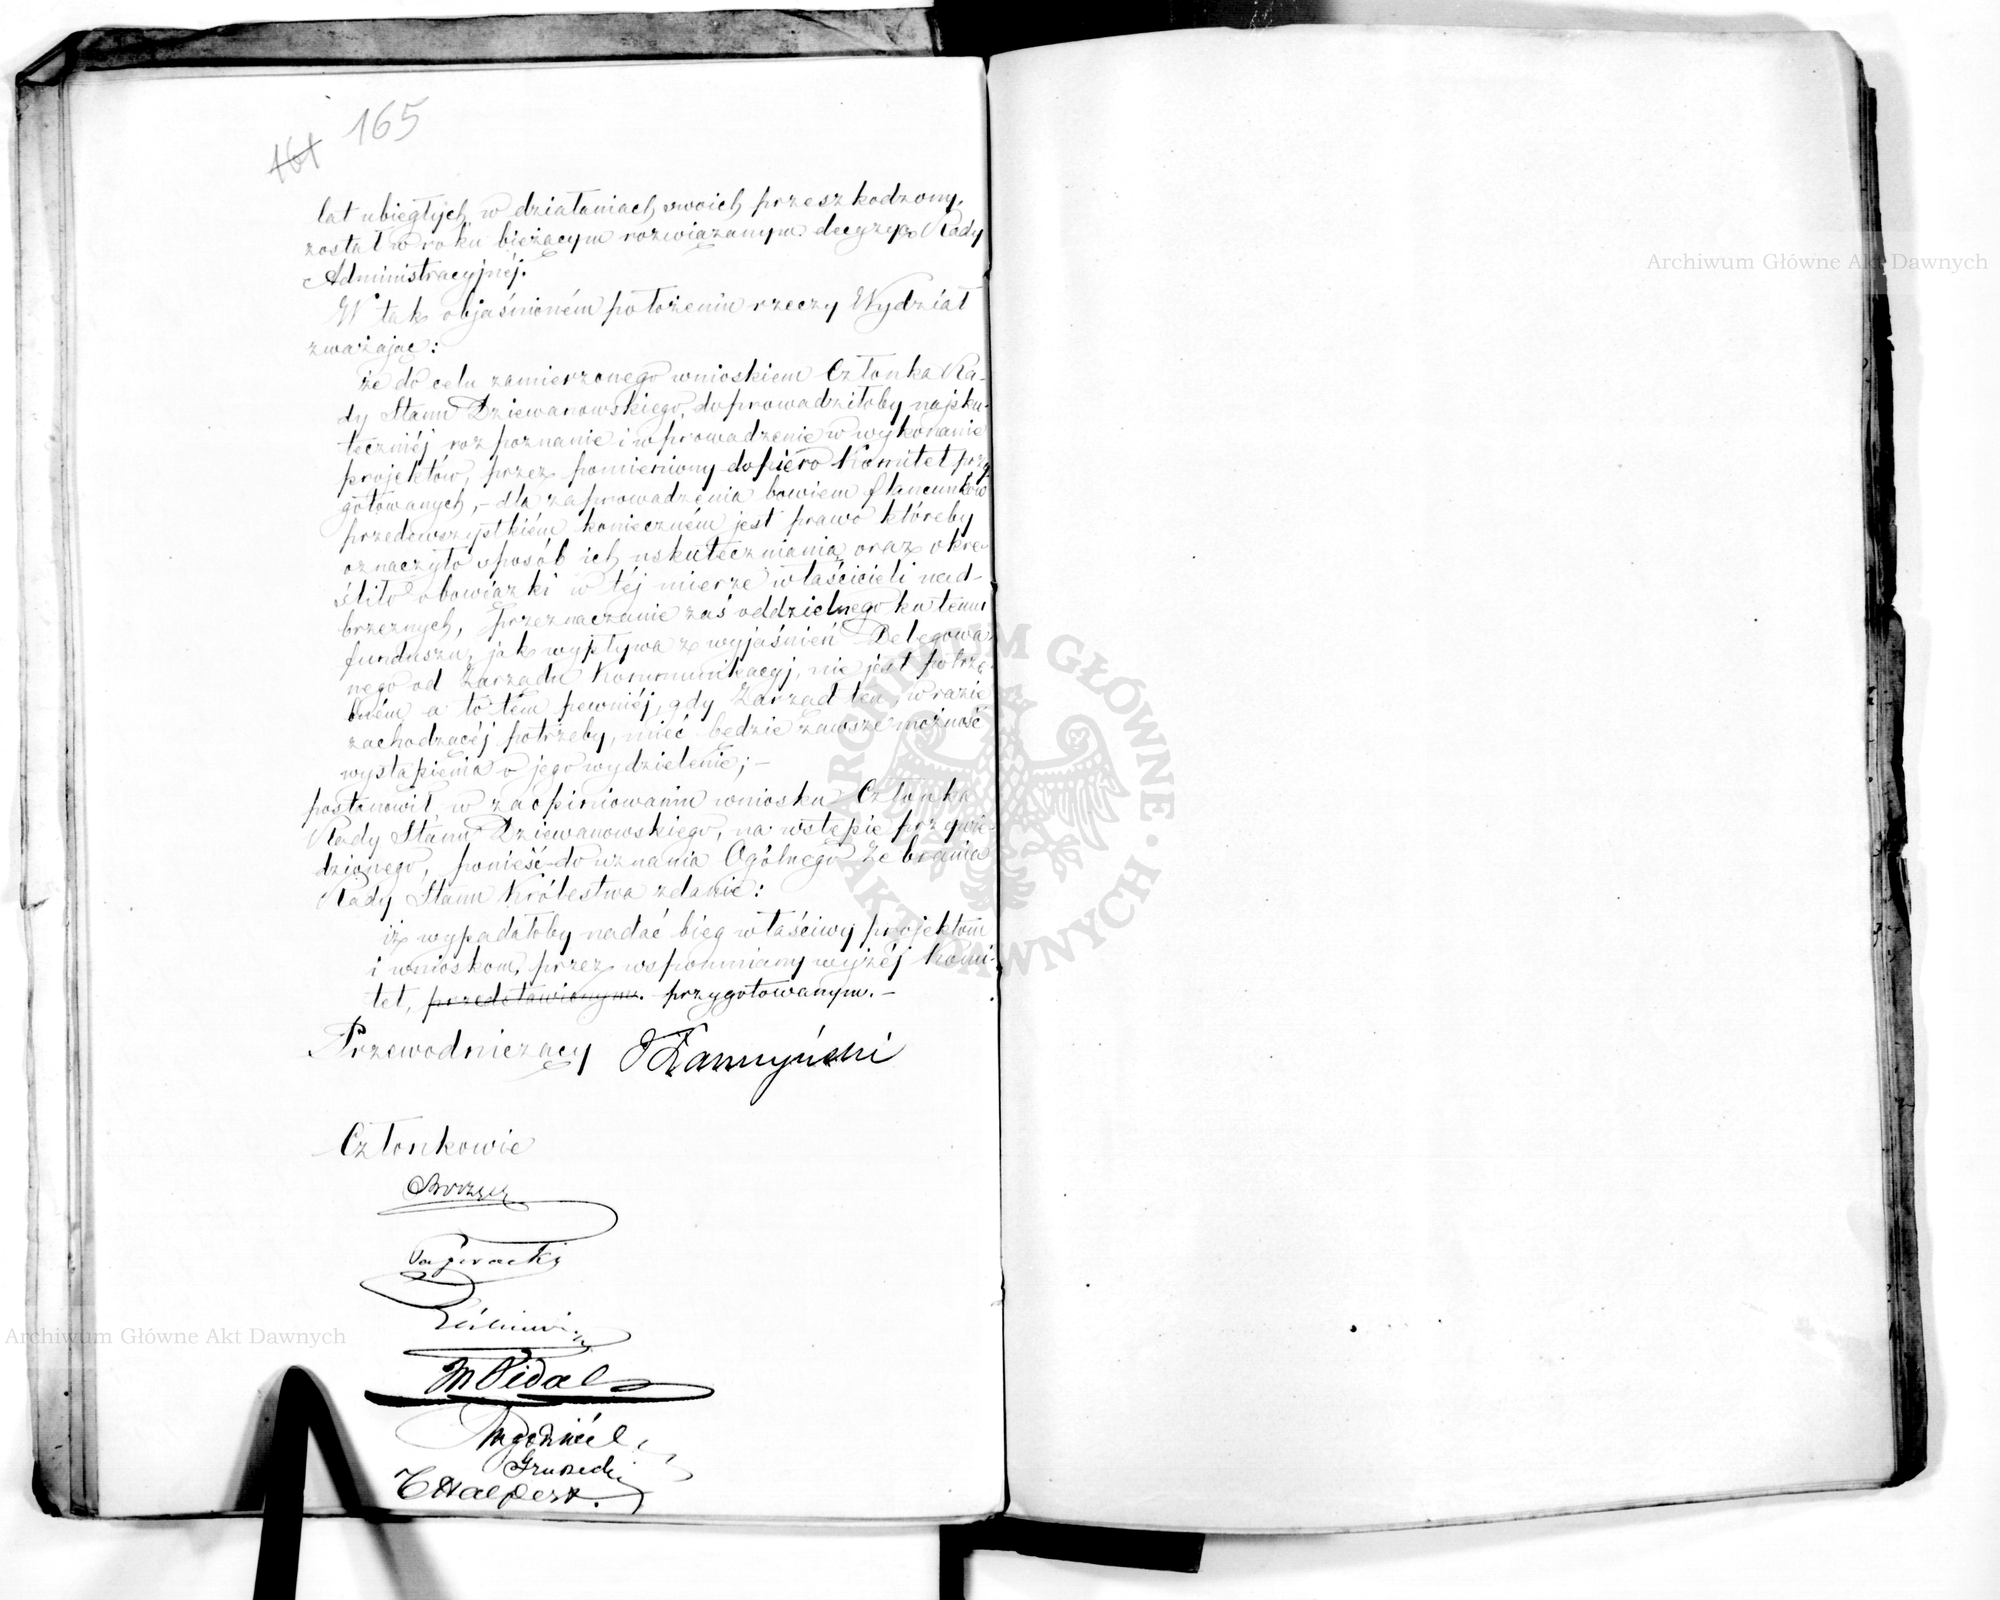 161 165
lat ubiegłych w działaniach swoich przeszkodzony,
został w roku bieżącym rozwiązanym decyzyą Rady
Administracyjnéj.
W tak objaśnioném położeniu rzeczy Wydział
zważając:
że do celu zamierzonego wnioskiem Członka Ra-
dy Stanu Dziewanowskiego, doprowadziłoby najsku-
teczniéj rozpoznanie i wprowadzenie w wykonanie
projektów, przez pomieniony dopiéro Komitet przy
gotowanych, – dla zaprowadzenia bowiem
przedewszystkiém konieczném jest prawo któreby
oznaczyło sposób ich uskuteczniania oraz okre-
śliło obowiązki w téj mierze właścicieli nad-
brzeżnych, przeznaczanie zaś oddzielnego ku temu
funduszu, jak wypływa z wyjaśnień Delegowa-
nego od Zarządu Kommunikacyj, nie jest potrze-
bném a to tém pewniéj, gdy Zarząd ten, w razie
zachodzącéj potrzeby, mieć będzie zawsze możność
wystąpienia o jego wydzielenie; –
postanowił w zaopiniowaniu wniosku Członka
Rady Stanu Dziewanowskiego, na wstępie przywie-
dzionego, ponieść do uznania Ogólnego Zebrania
Rady Stanu Królestwa zdanie:
iż wypadałoby nadać bieg właściwy projektom
i wnioskom, przez wspomniany wyżéj Komi-
tet, przedstawionym. przygotowanym. –
Przewodniczący
Członkowie
Paprocki
M Vidal
Gruszecki
Halpert.
Archiwum Główne Akt Dawnych
Archiwum Główne Akt Dawnych
ARCHIWUM GŁÓWNE AKT DAWNYCH